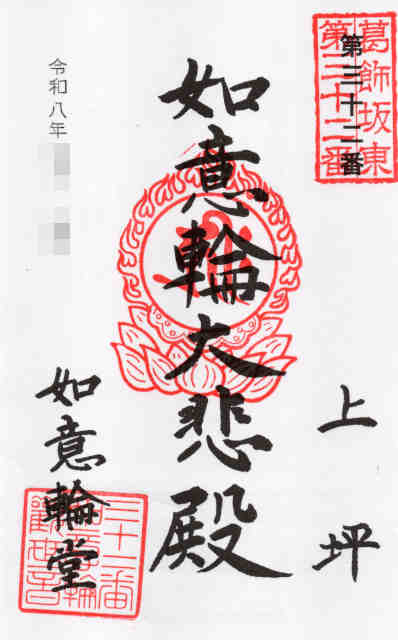 葛飾坂東
第三十二番
第三十二番
上坪
如意輪大悲殿
令和八年
如意輪堂
觀世音